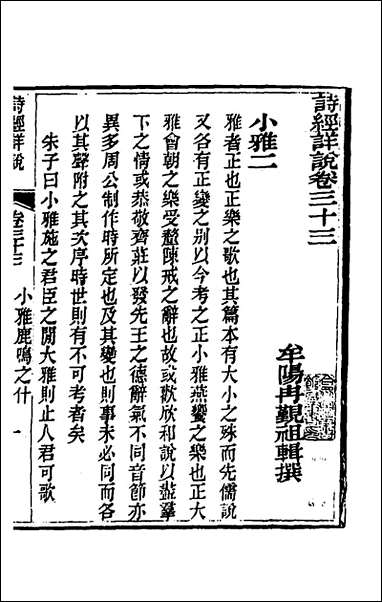 詩經詳說卷三十三
牟陽冉覲祖輯撰
小雅二
雅者正也正樂之歌也其篇本有大小之殊而先儒說
又各有正變之别以今考之正小雅燕饗之樂也正大
雅會朝之樂受釐陳戒之辭也故或歡欣和說以盡羣
下之情或恭敬齊莊以發先王之德辭氣不同音節亦
異多周公制作時所定也及其變也則事未必同而各
以其聲附之其次序時世則有不可考者矣
朱子曰小雅施之君臣之閒大雅則止人君可歌
詩經詳說
卷三十三
小雅鹿鳴之什
一